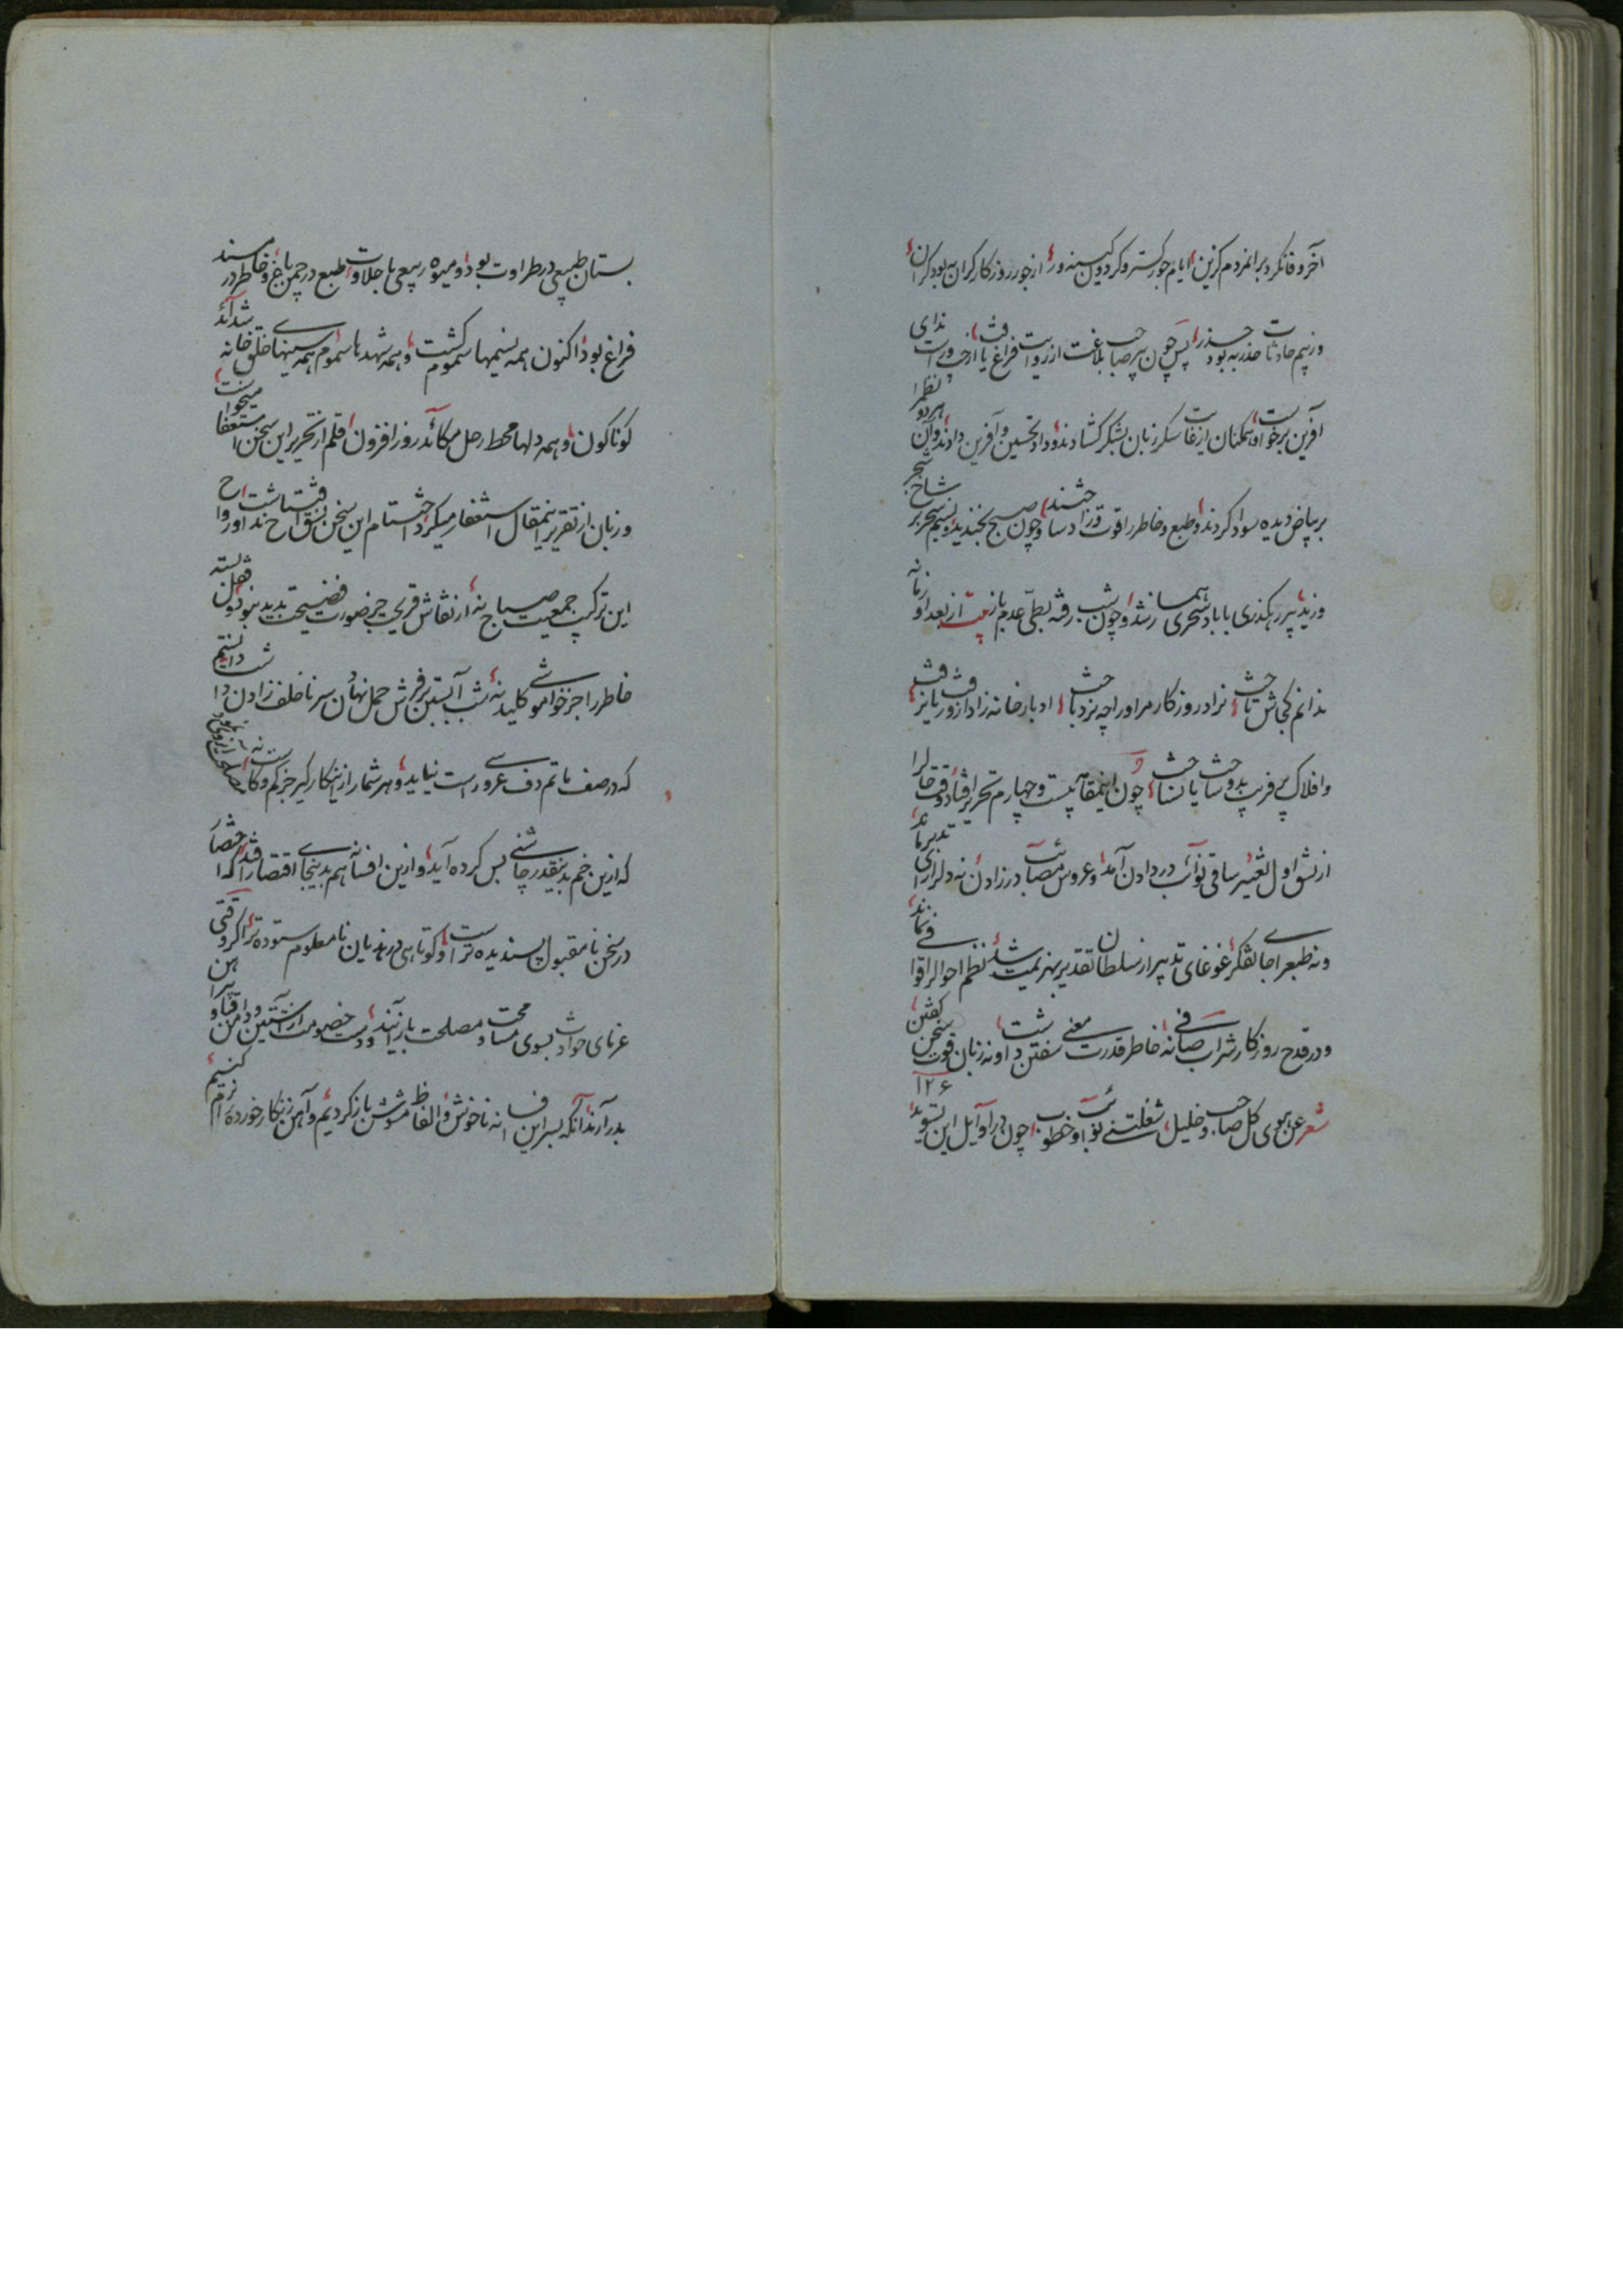 آخر وفا نکرد برانمردم گزین ایام جور گستر و گردون کینه ور از جور روزگار کران به بود کران
وز بیم حادثات حذر به بود حذر پس چون پیر صاحب بلاغت از روایت فراغ یافت از چپ و راست ندای
آفرین برخواست و همکنان از نفاست سکر زبان بشکر گشادند و داد تحسین و آفرین دادند و آن نظم را هر دو
بر بیاض دیده سواد کردند و طبع و خاطر را قوت و زاد ساختند و چون صبح بخندید و نسیم سحر بر شاخ شجر
وزید پیر رهگذری با باد سحری همساز شد و چون شب رفته بطی عدم باز از بعد او زمانه
ندانم کجاش تاخت نراد روزگار مر او را چه نرد باخت ادبار خانه زاد ازو روی بر نتافت
و افلاک پر فریب بدو ساخت یا نساخت چون اینمقامه بیست و چهارم تحریر افتاد وقت حال را
از نسق اول تغییر ساقی نوائب درد دادن آمد و عروس مصائب در زادن نه دل را رای تدبیر ماند
و نه طبع را جای تفکر غوغای تدبیر از سلطان تقدیر بهزیمت شد نظم احوال را قوافی نماند
و در قدح روزگار شراب صافی نه خاطر قدرت معنی سفتن داشت و نه زبان قوت سخن گفتن
۱۲۶
شعر عن هوی کل صاحب و خلیل شغلتنی نوائب و خطوب چون در اوایل این تسوید
بستان طبیعی در طراوت بود و میوه ربیعی با حلاوت طبع در چمن باغ و خاطر در مسند
فراغ بود اکنون همه نسیمها سموم گشت و همه شهدها سموم همه سینهای خلق خانه شدائد
گوناگون و همه دلها محط رحل مکائد روز افزون قلم از تحریر این سخن استعفا میخواست
و زبان از تقریر اینمقال استغفار میکرد اختتام این سخن بنسق افتتاح نداشت و رواح
این ترکیب جمعیت صباح نه از نقاش قریحت جز صورت فضیحت پدید نبود و قفل بسته
خاطر را جز خواموشی کلید نه شب آبستن بر فرش حمل نهادن سر ناخلف زادن داشت دانستیم
که در صف ماتم دف عروسی راست نیاید و هر شمار ازینکار گیر جز کم و کاست نه
که ازین خم بدینقدر چاشنی بس کرده آید و ازین افسانه هم بدینجای اقتصار افتد که اختصار
در سخن نامقبول پسندیده تر است و کوتاهی در هذیان نامعلوم ستوده تر اگر وقتی
غرمای حوادث بسوی مسامحت و مصلحت باز آیند و دست خصومت از آستین و دامن و قبا و پیراهن
بدر آرند آنکه بسر این افسانه ناخوش و الفاظ مشوش باز گردیم و آهن زنگار خورده را نرم کنیم